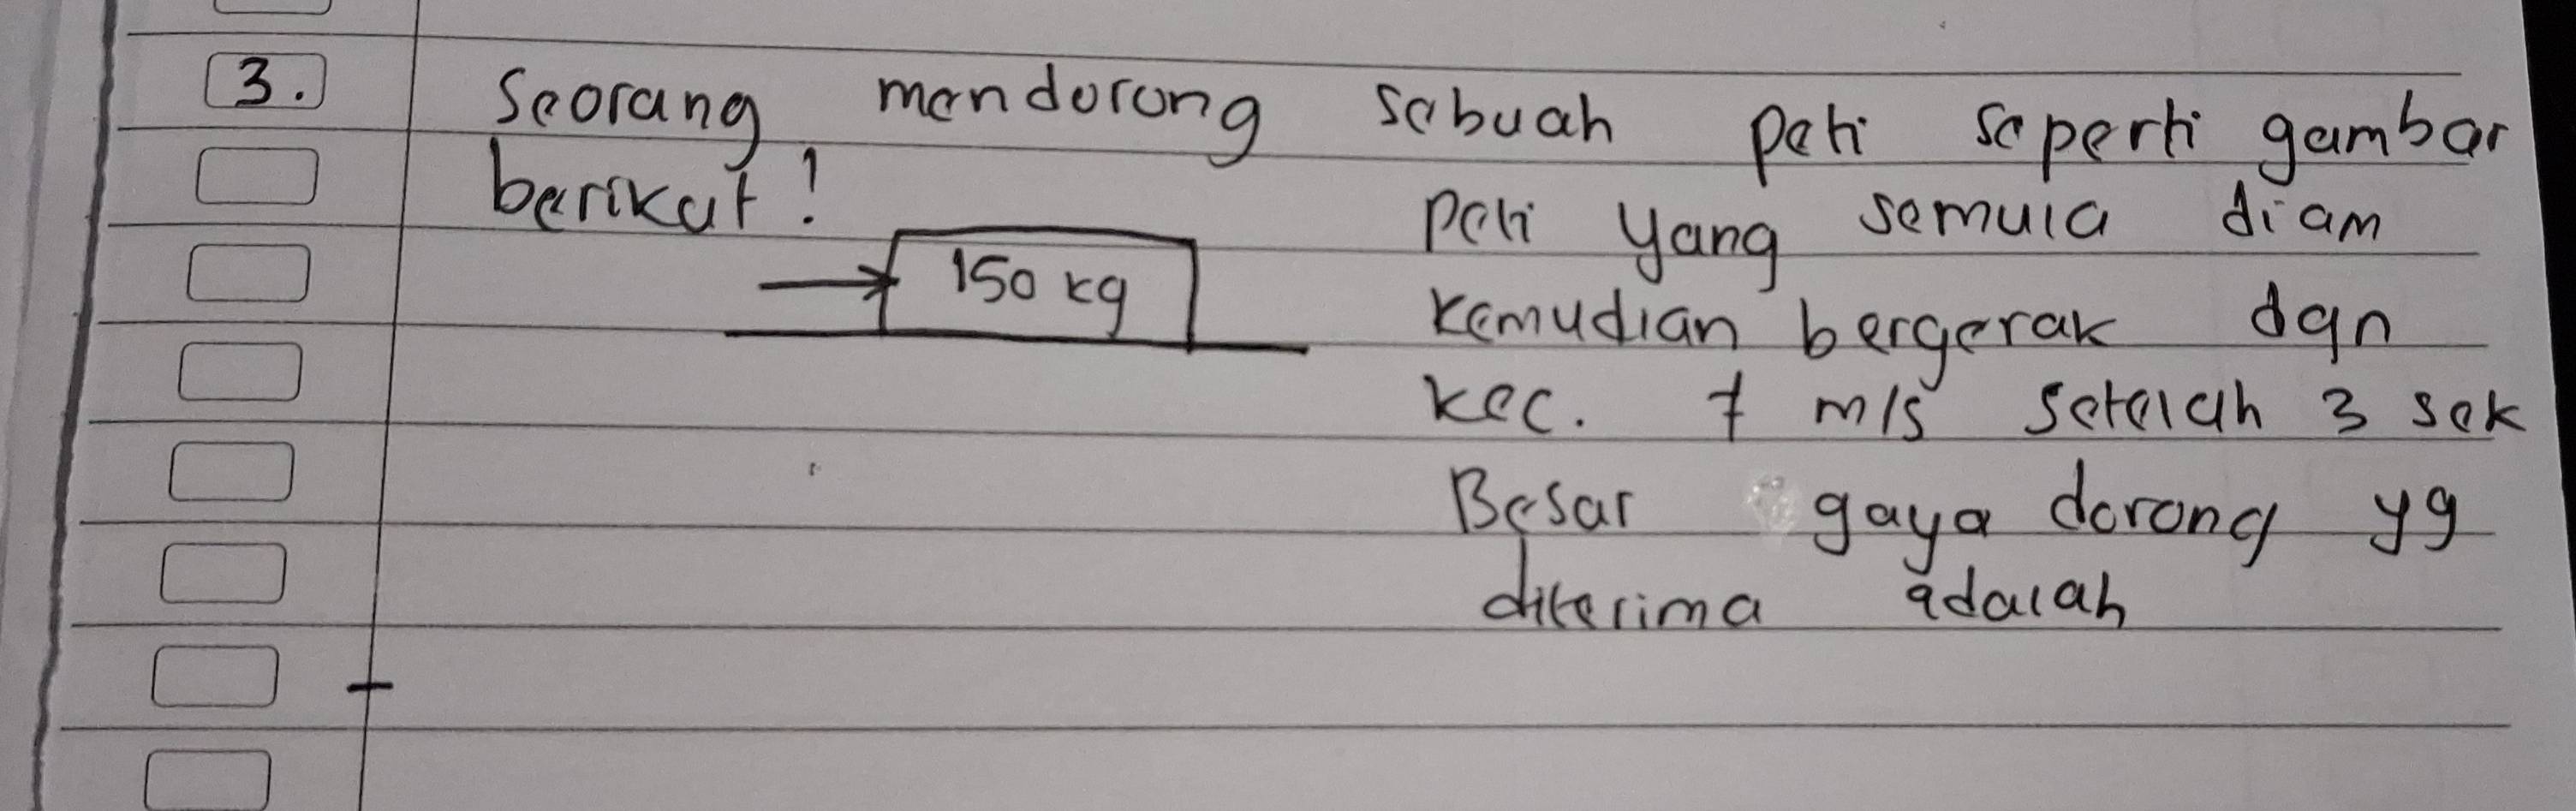 3. Seorang mendorong sebuah peti seperti gambar
berikut!
150 kg
peti yang semula diam
kemudian bergerak dgn
kec. 7 m/s setelah 3 sek
Besar gaya dorong yg
diterima adalah